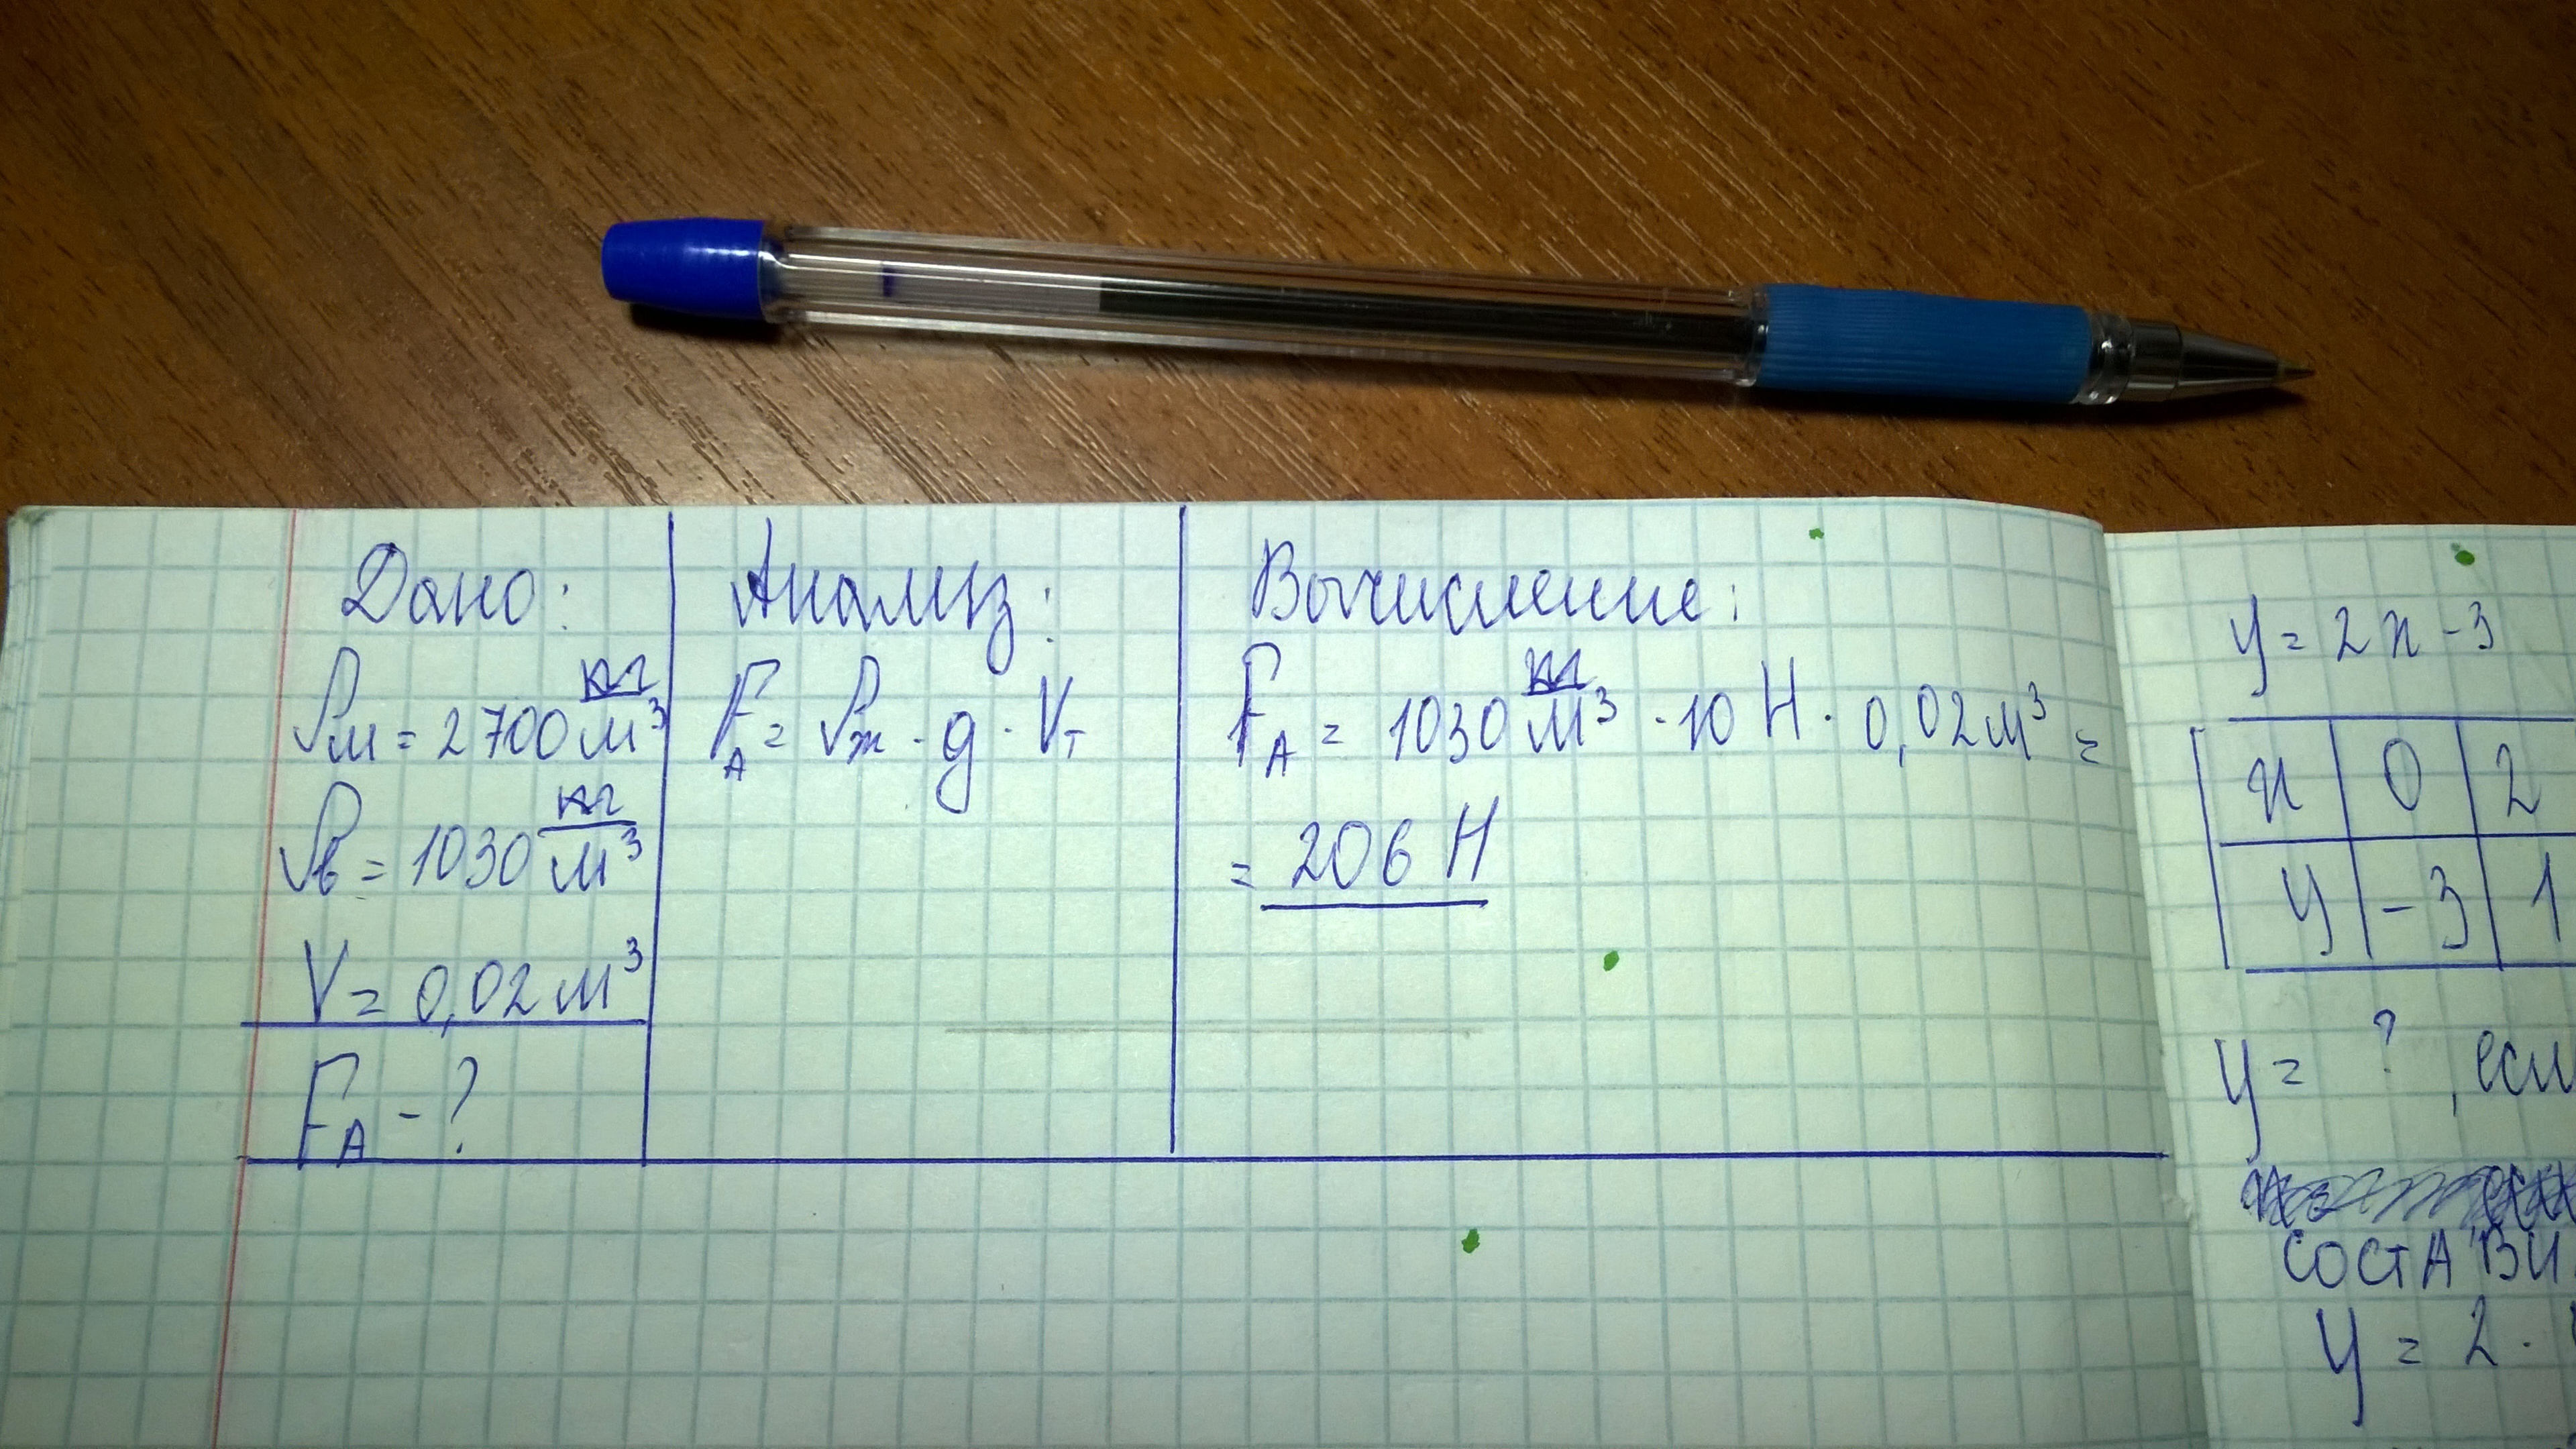 Дано:
ρм = 2700 кг/м³
ρв = 1030 кг/м³
V = 0,02 м³
FА - ?
Анализ:
FА = ρж · g · Vт
Вычисление:
FА = 1030 кг/м³ · 10 Н · 0,02 м³ =
= 206 Н
y = 2x - 3
x 0 2
y -3 1
y = ? , если
СОСТАВИ
y = 2 ·